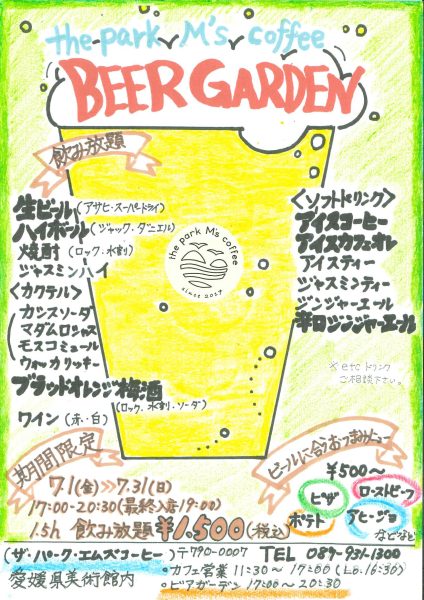 the park M's coffee
BEER GARDEN
飲み放題
生ビール(アサヒ・スーパードライ)
ハイボール(ジャック・ダニエル)
焼酎(ロック、水割)
ジャスミンハイ
<カクテル>
カシスソーダ
マダムロシャス
モスコミュール
ウォッカリッキー
ブラッドオレンジ梅酒
(ロック、水割・ソーダ)
ワイン(赤・白)
the park M's coffee
since 2017
<ソフトドリンク>
アイスコーヒー
アイスカフェオレ
アイスティー
ジャスミンティー
ジンジャーエール
辛口ジンジャーエール
※etcドリンク
ご相談下さい。
期間限定
7.1(金)>>7.31(日)
17:00-20:30(最終入店19:00)
1.5h 飲み放題¥1,500(税込)
ビールに合うおつまみメニュー
¥500〜
ピザ
ローストビーフ
ポテト
アヒージョ
などなど
(ザ・パーク・エムズコーヒー)〒790-0007 TEL 089-931-1300
愛媛県美術館内
・カフェ営業 11:30〜17:00(Lo.16:30)
・ビアガーデン 17:00〜20:30